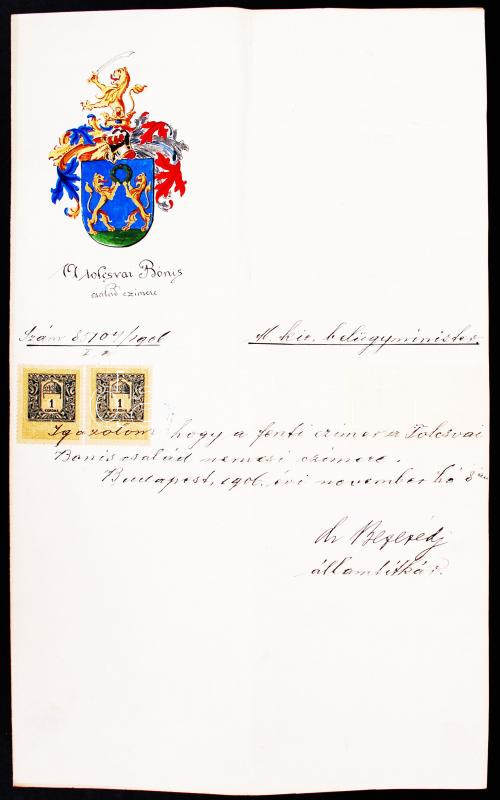 A tolcsvai Bónis
család czimere
Szám 8107/1906
I. a.
M. kir. belügyminister.
1
KORONA
1
KORONA
Igazolom hogy a fenti czimer a Tolcsvai
Bonis család nemesi czimere.
Budapest, 1906. évi november hó 8án
dr Bezerédj
államtitkár.